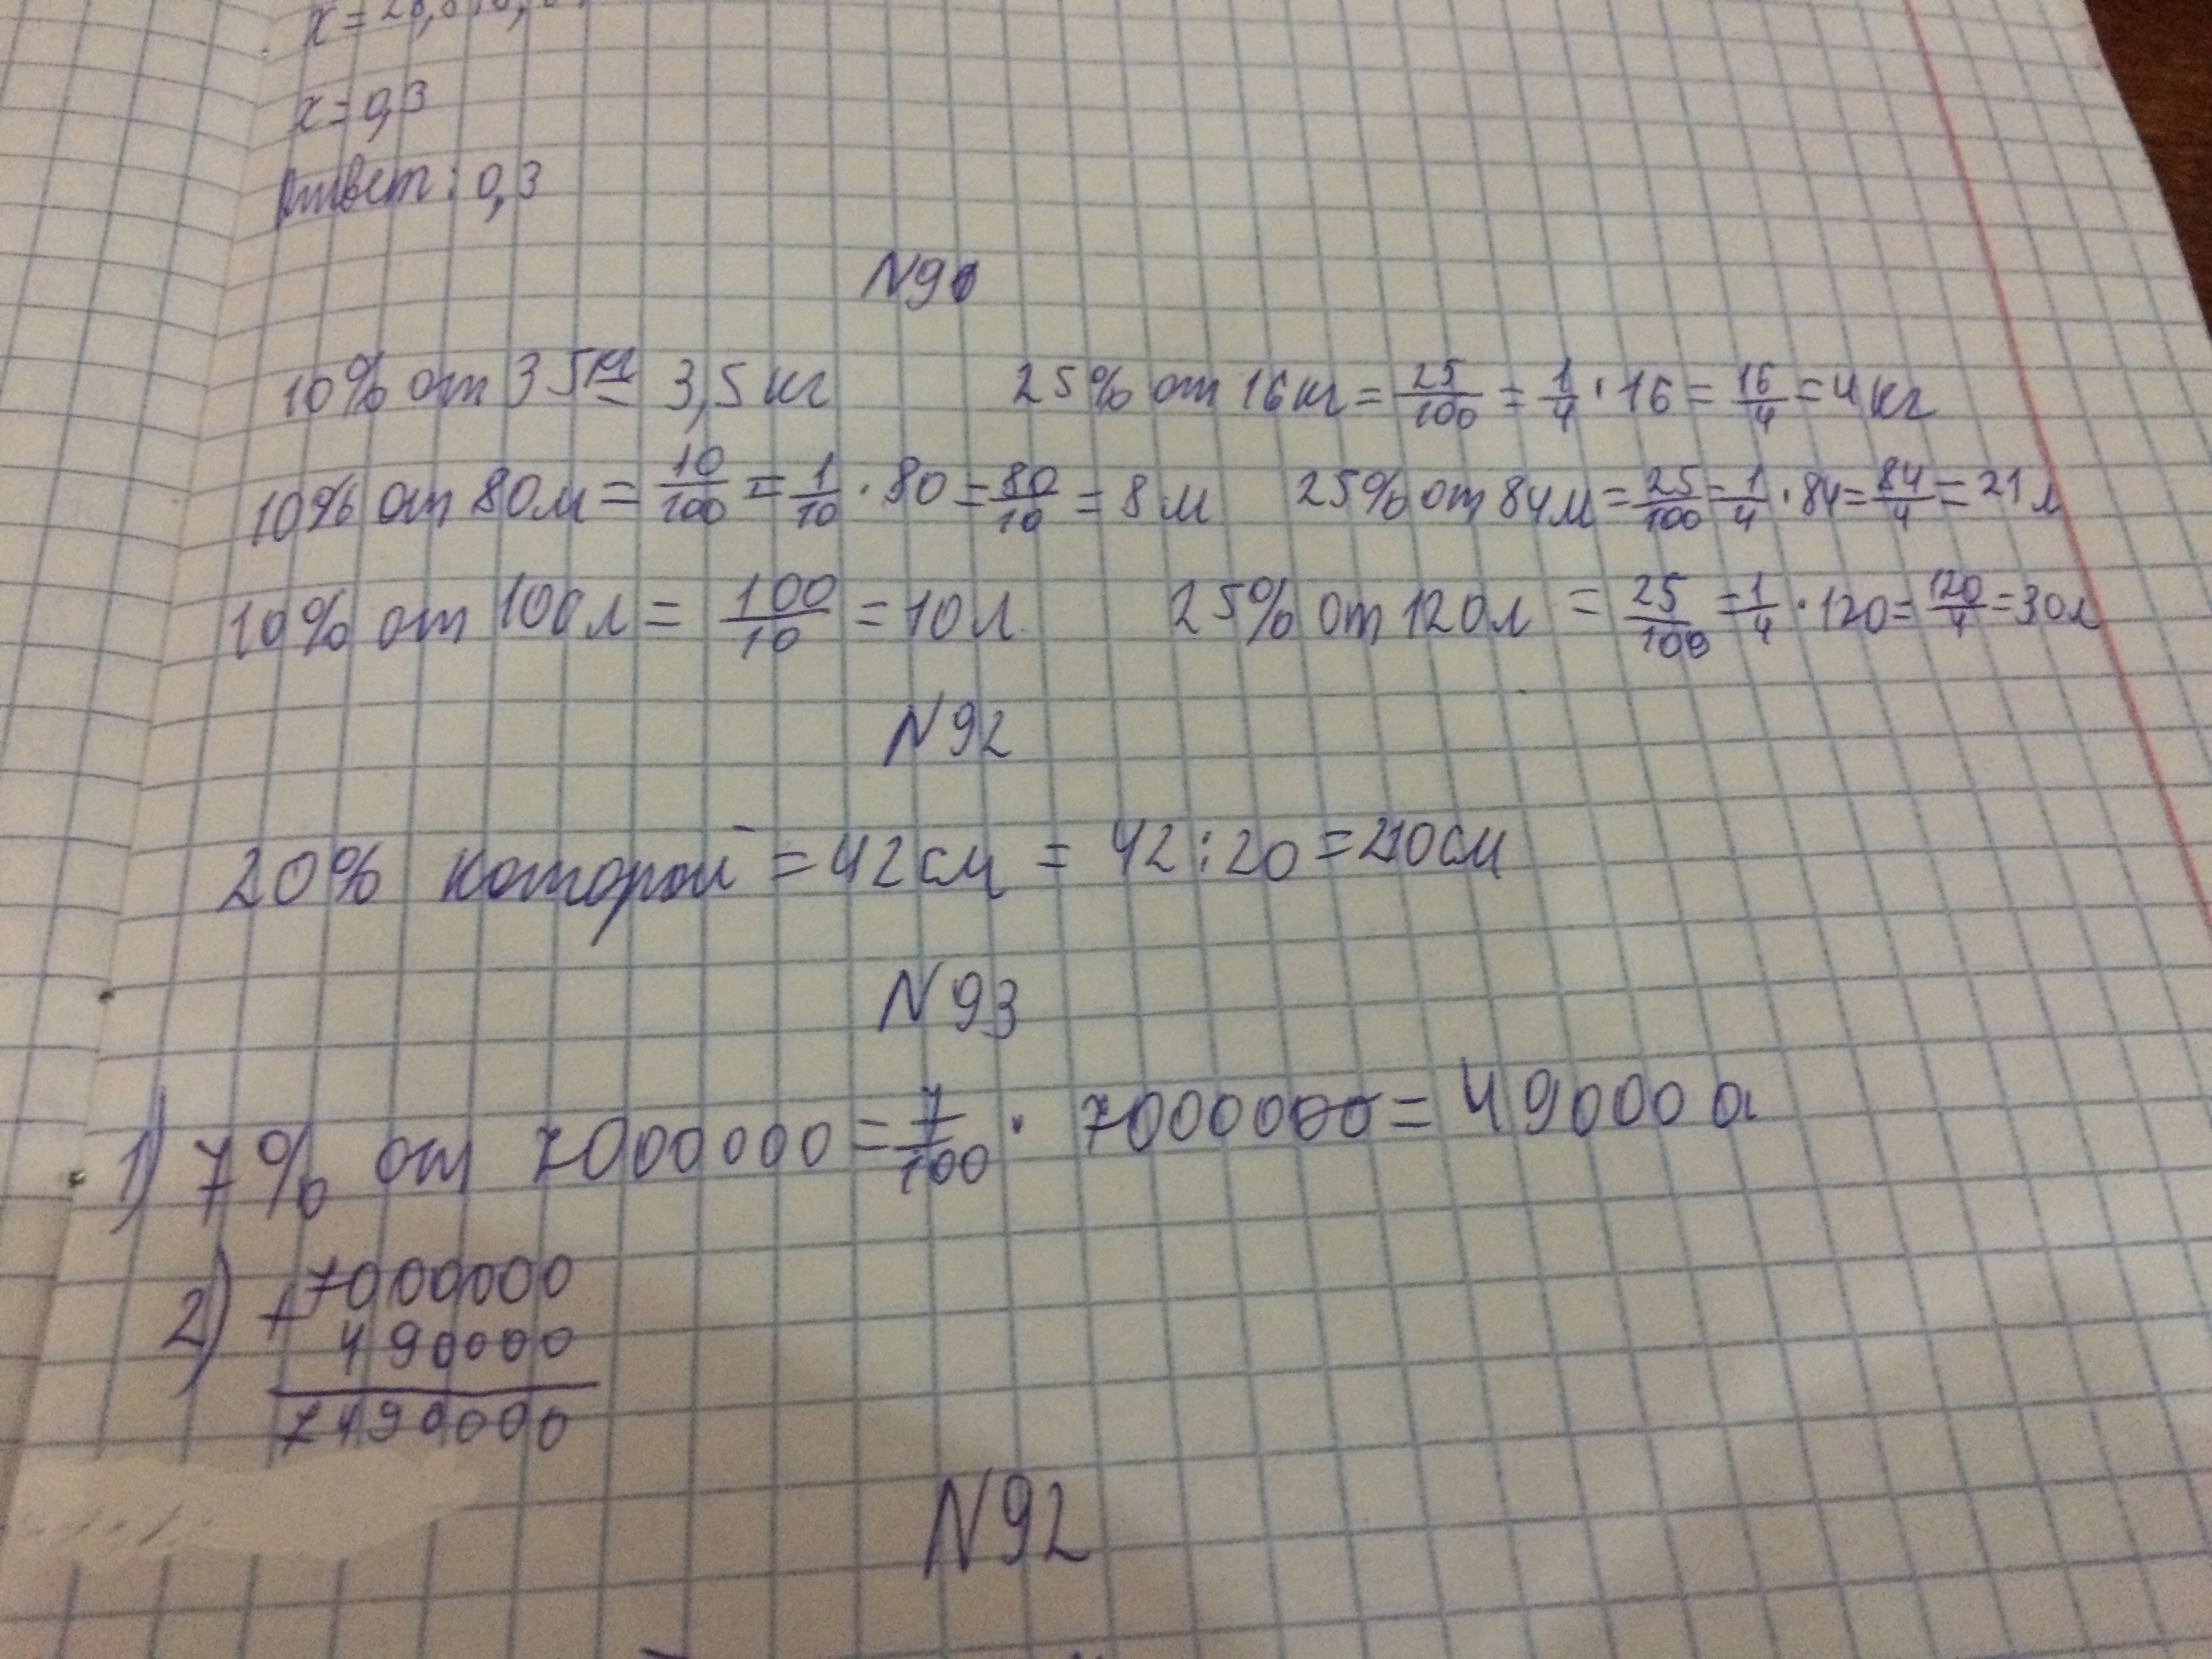 x = 0,3
Ответ: 0,3
N90
10% от 35кг = 3,5 кг 25% от 16кг = 25/100 = 1/4 · 16 = 16/4 = 4 кг
10% от 80м = 10/100 = 1/10 · 80 = 80/10 = 8 м 25% от 84м = 25/100 = 1/4 · 84 = 84/4 = 21 м
10% от 100л = 100/10 = 10 л. 25% от 120л = 25/100 = 1/4 · 120 = 120/4 = 30л
N92
20% которой = 42см = 42:20 = 210см
N93
1) 7% от 7000000 = 7/100 · 7000000 = 490000
2) +7000000
490000
7490000
N92